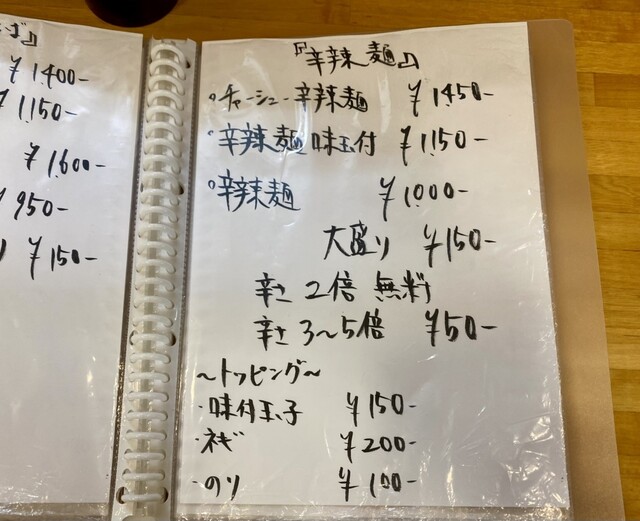 ば』
¥1400-
¥1,150-
¥1,600-
¥950-
り ¥150-
『辛辣麺』
○チャーシュー辛辣麺 ¥1,450-
○辛辣麺 味玉付 ¥1,150-
○辛辣麺 ¥1,000-
大盛り ¥150-
辛さ 2倍 無料
辛さ 3〜5倍 ¥50-
〜トッピング〜
・味付玉子 ¥150-
・ネギ ¥200-
・のり ¥100-